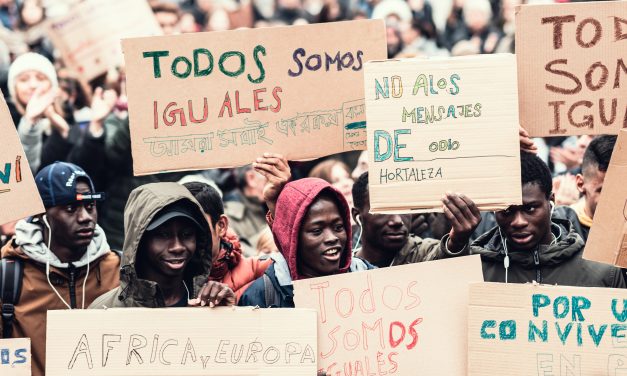 TODOS SOMOS
IGUALES
আমরা সবাই
NO A LOS
MENSAJES
DE ODIO
HORTALEZA
TOD
SOM
IGUA
AFRICA Y EUROPA
TODOS
SOMOS
IGUALES
POR U
CONVIVE
EN P
OS